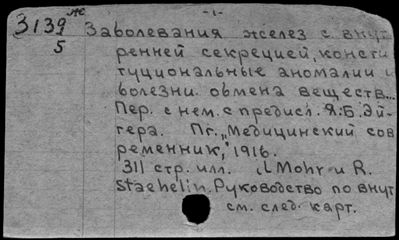 -1-
3139 Же
5
Заболевания желез с внут
ренней секрецией, консти
туциональные аномалии и
болезни обмена веществ...
Пер. с нем. с предисл. Я.Б. Эй-
гера. Пг., "Медицинский сов
ременник", 1916.
311 стр. илл. L Mohr и R.
Staehelin. Руководство по внут
см. след. карт.